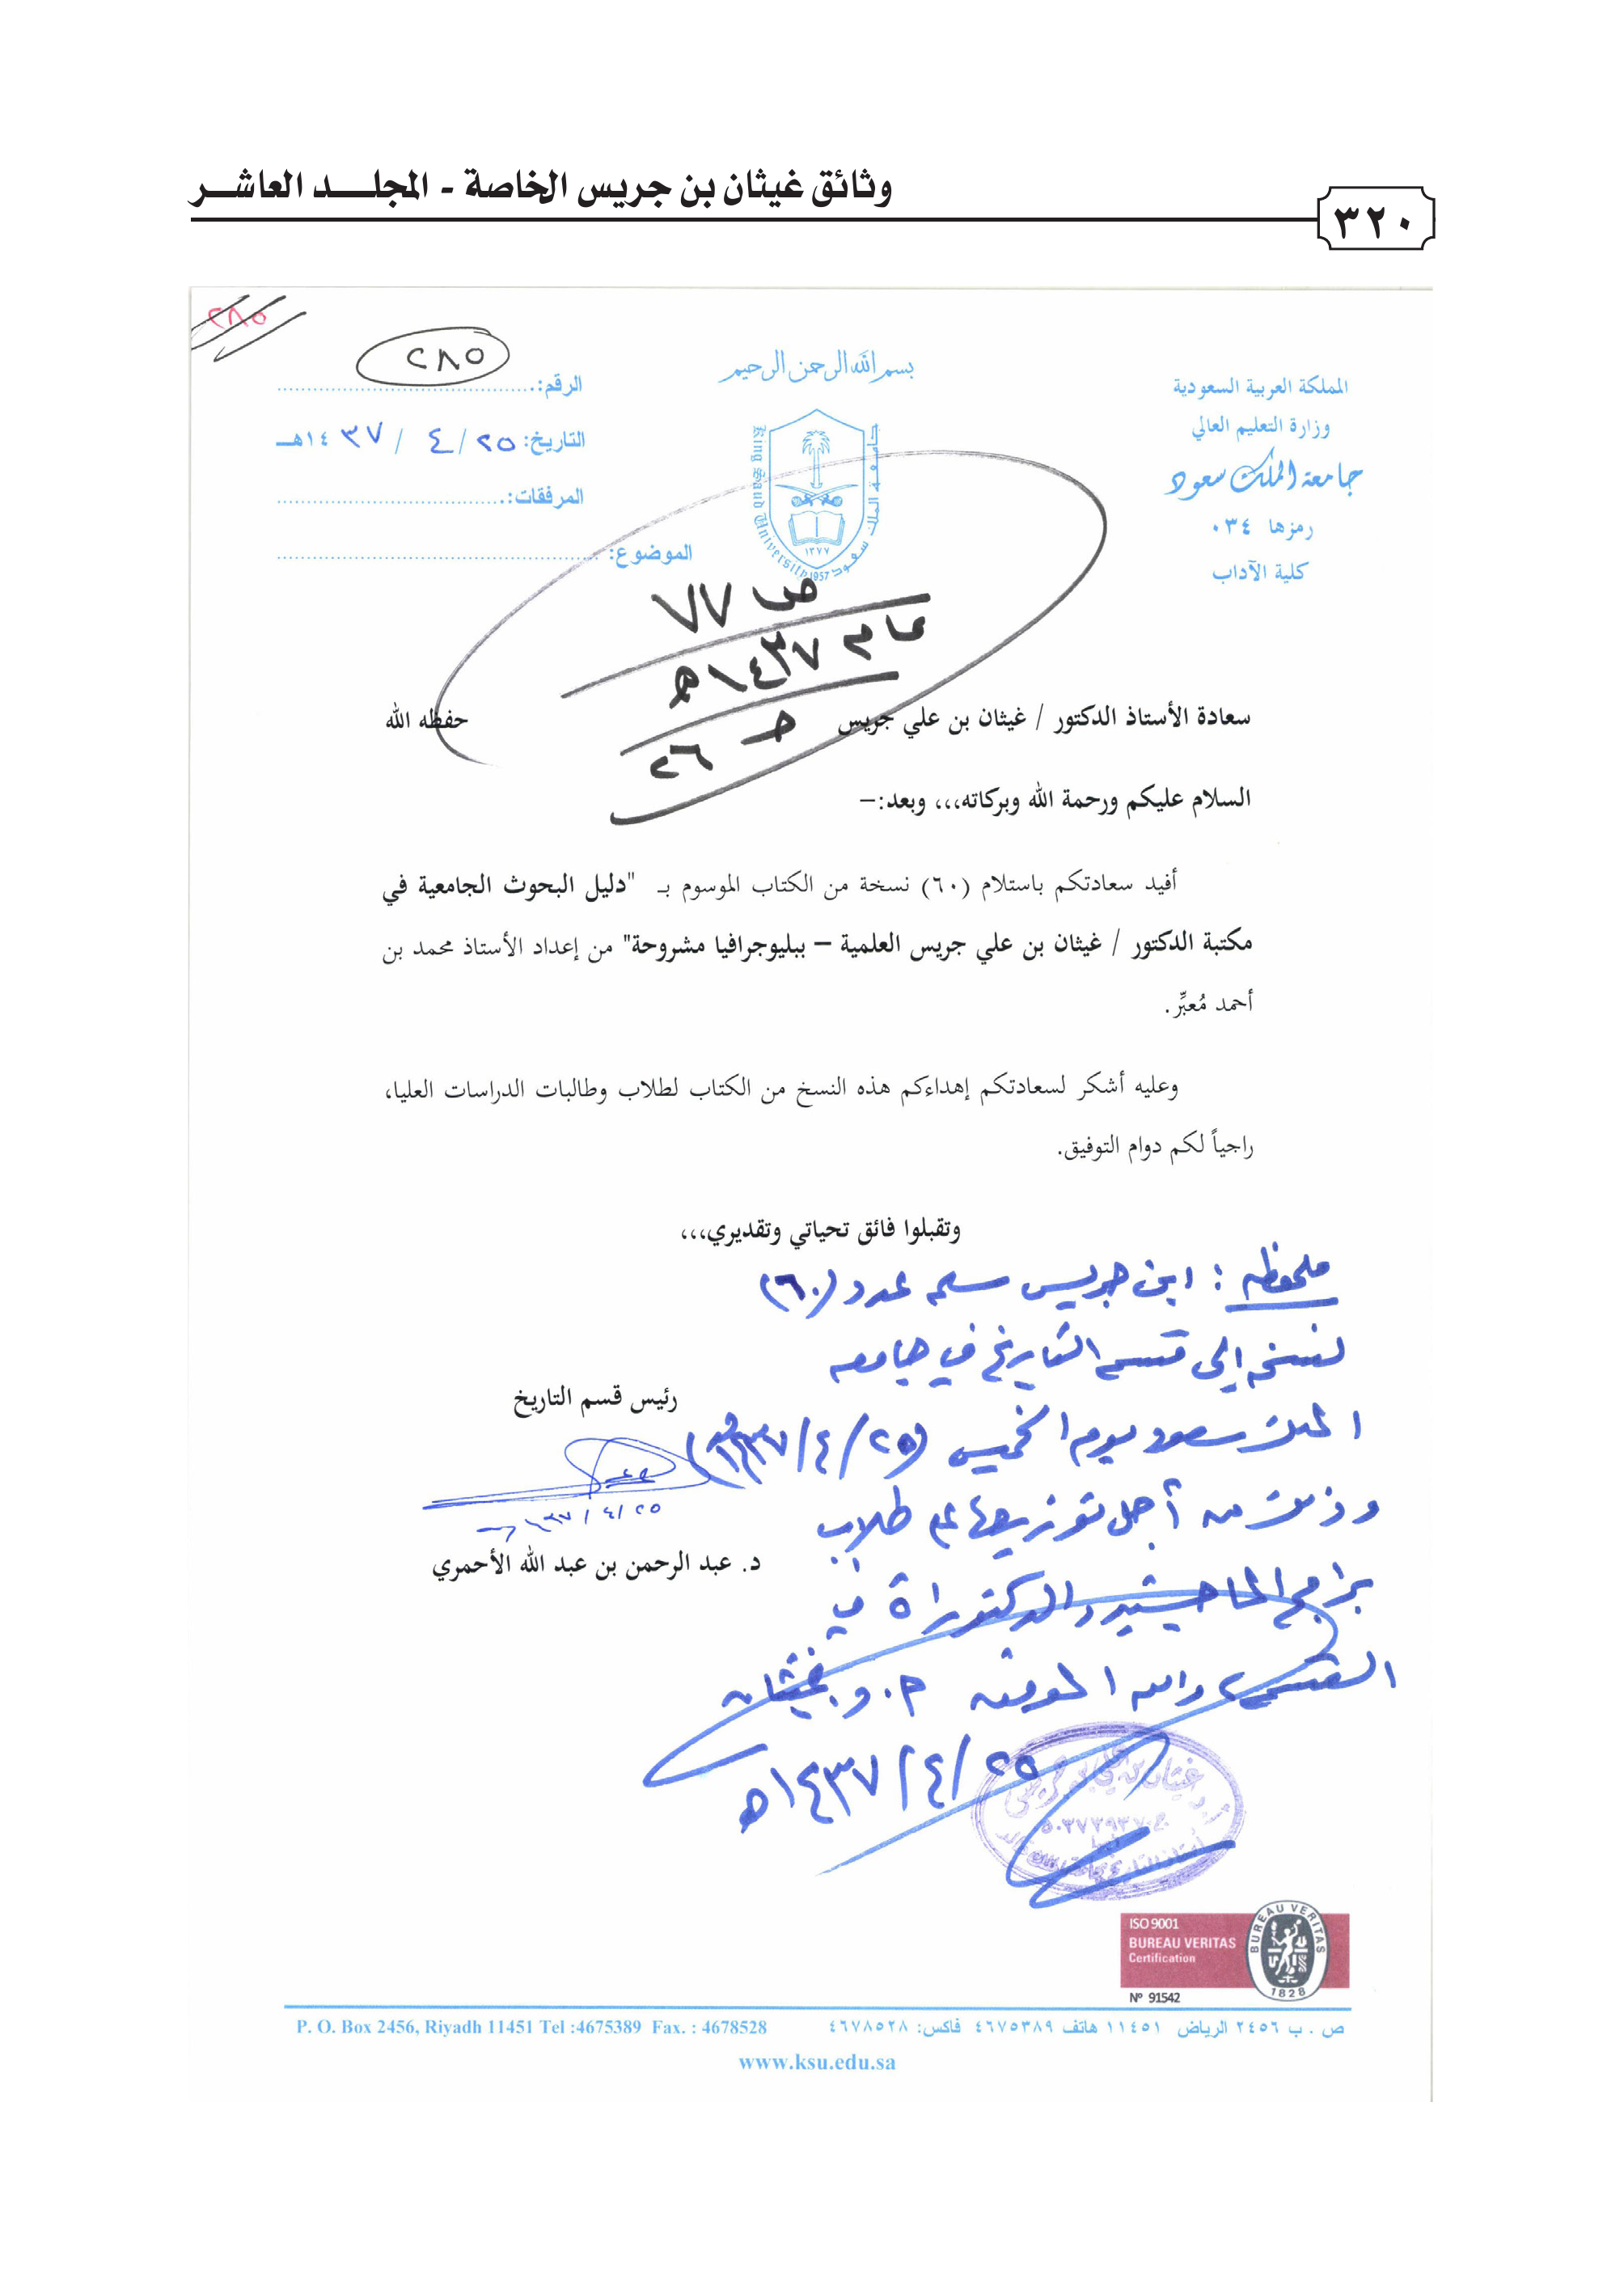 وثائق غيثان بن جريس الخاصة - المجلد العاشر
٣٢٠
٢٨٥
المملكة العربية السعودية
وزارة التعليم العالي
جامعة الملك سعود
رمزها ٠٣٤
كلية الآداب
بسم الله الرحمن الرحيم
جامعة الملك سعود
King Saud University
١٣٧٧
1957
الرقم: ٢٨٥
التاريخ: ٢٥ / ٤ / ١٤٣٧هـ
المرفقات:
الموضوع:
ص ٧٧
عام ١٤٣٧هـ
ح ٢٦
سعادة الأستاذ الدكتور / غيثان بن علي جريس حفظه الله
السلام عليكم ورحمة الله وبركاته،،، وبعد:–
أفيد سعادتكم باستلام (٦٠) نسخة من الكتاب الموسوم بـ "دليل البحوث الجامعية في
مكتبة الدكتور / غيثان بن علي جريس العلمية – ببليوجرافيا مشروحة" من إعداد الأستاذ محمد بن
أحمد مُعبِّر.
وعليه أشكر لسعادتكم إهداءكم هذه النسخ من الكتاب لطلاب وطالبات الدراسات العليا،
راجياً لكم دوام التوفيق.
وتقبلوا فائق تحياتي وتقديري،،،
رئيس قسم التاريخ
٢٥ / ٤ / ١٤٣٧
د. عبد الرحمن بن عبد الله الأحمري
ملحوظه : ابن جريس سلم عدد (٦٠)
نسخه إلى قسم التاريخ في جامعه
الملك سعود يوم الخميس (٢٥ / ٤ / ١٤٣٧هـ)
وذلك من أجل توزيعها على طلاب
برامج الماجستير والدكتوراة في
القسم والله الموفق أ.د غيثان
٢٥ / ٤ / ١٤٣٧هـ
ISO 9001
BUREAU VERITAS
Certification
Nº 91542
BUREAU VERITAS
1828
ص . ب ٢٤٥٦ الرياض ١١٤٥١ هاتف ٤٦٧٥٣٨٩ فاكس: ٤٦٧٨٥٢٨
P. O. Box 2456, Riyadh 11451 Tel :4675389 Fax. : 4678528
www.ksu.edu.sa